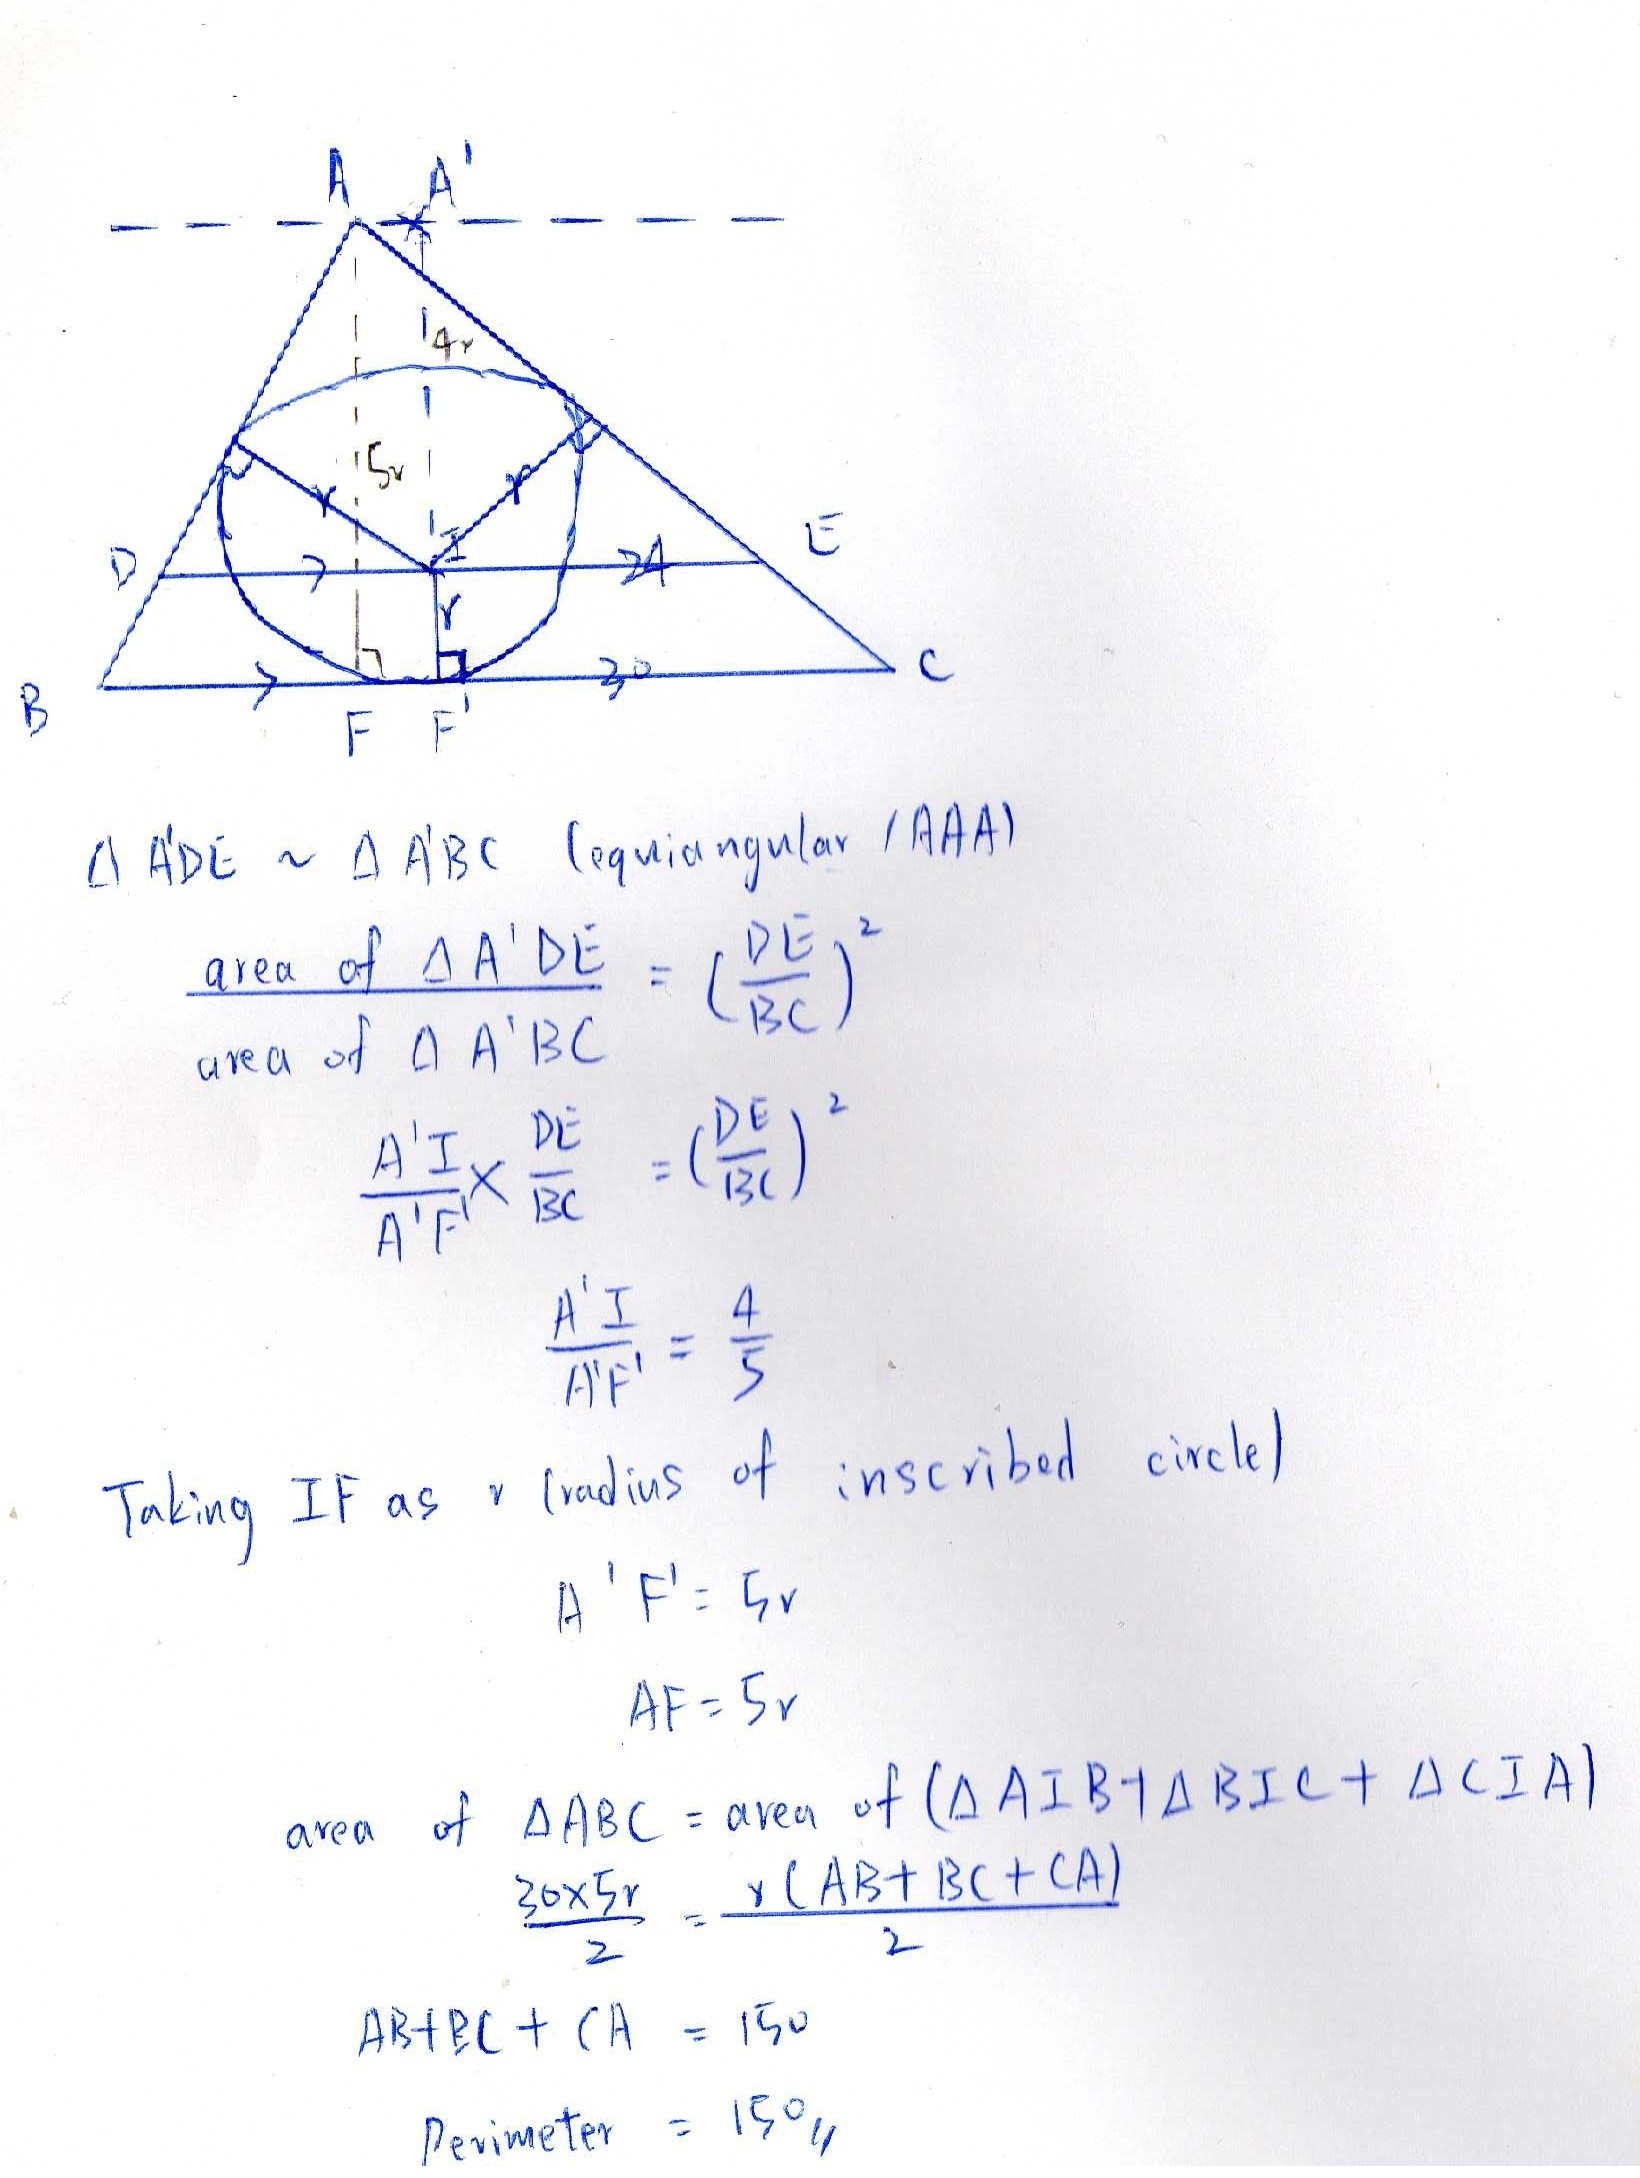 A A'
4r
5r
r r
D I 24 E
r
B 30 C
F F'
Δ A'DE ~ Δ A'BC (equiangular / AAA)
area of Δ A'DE / area of Δ A'BC = (DE/BC)²
A'I/A'F' × DE/BC = (DE/BC)²
A'I/A'F' = 4/5
Taking IF as r (radius of inscribed circle)
A'F' = 5r
AF = 5r
area of ΔABC = area of (ΔAIB + ΔBIC + ΔCIA)
30×5r/2 = r(AB + BC + CA)/2
AB + BC + CA = 150
Perimeter = 150,,